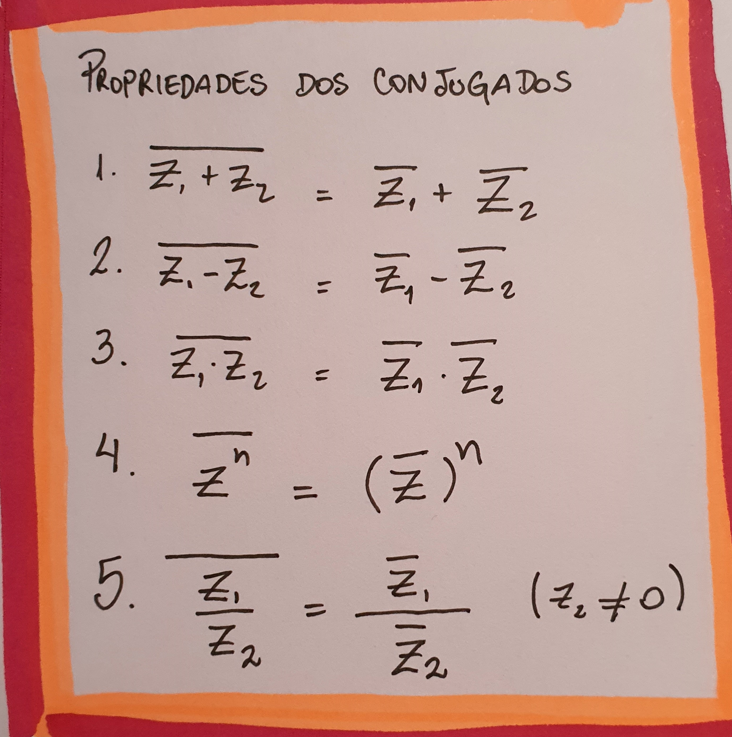 PROPRIEDADES DOS CONJUGADOS
1. \overline{z_1 + z_2} = \overline{z}_1 + \overline{z}_2
2. \overline{z_1 - z_2} = \overline{z}_1 - \overline{z}_2
3. \overline{z_1 \cdot z_2} = \overline{z}_1 \cdot \overline{z}_2
4. \overline{z^n} = (\overline{z})^n
5. \overline{\frac{z_1}{z_2}} = \frac{\overline{z}_1}{\overline{z}_2} (z_2 ≠ 0)